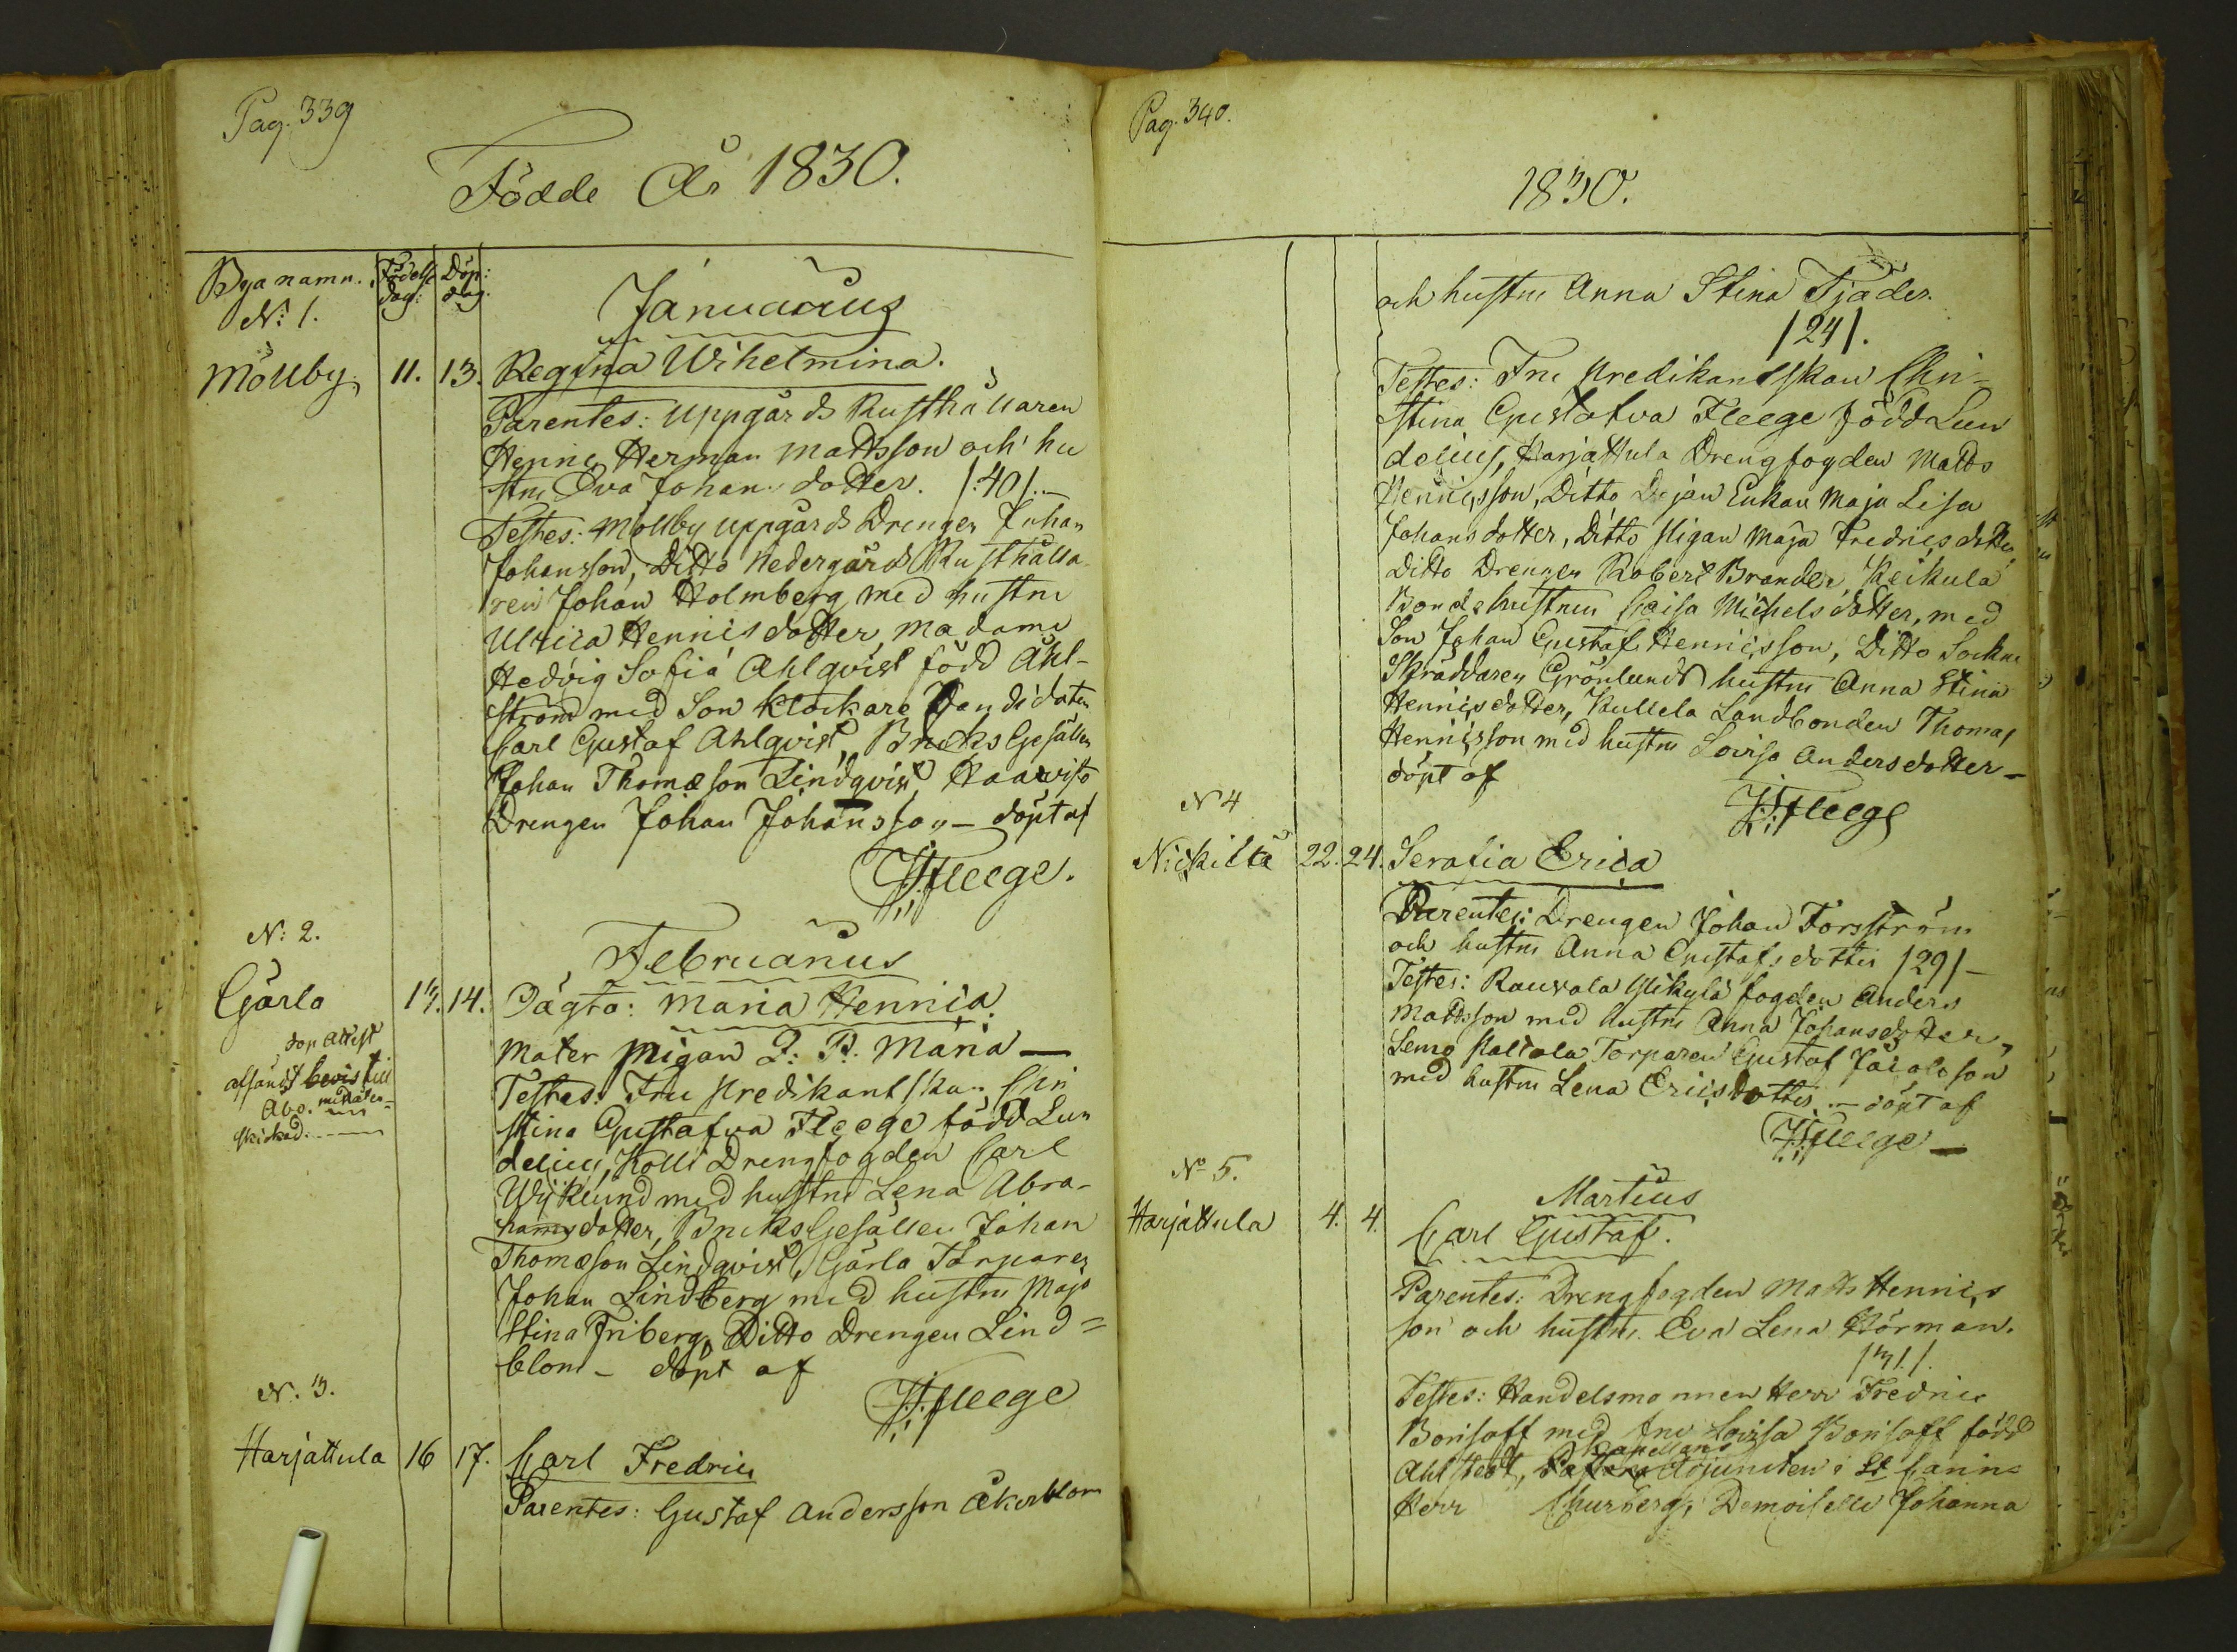 Pag. 339
Födde År 1830.
Bya namn. Födelse dag: Döp: dag.
N: 1.
Januarius
Mollby. 11. 13. Regina Wihelmina.
Parentes: Uppgårds Rusthållaren
Henric Herman Mattsson och hu
stru Eva Johans dotter. /:40/.
Testes: Mollby Uppgårds Drengen Johan
Johansson, Ditto Nedergårds Rusthålla
ren Johan Holmberg med hustru
Ulrica Henricsdotter, Madame
Hedvig Sofia Ahlqvist född Ahl-
ström med Son Klockare Candidaten
Carl Gustaf Ahlqvist, Bruks Gesällen
Johan Thomæson Lindqvist,
Drengen Johan Johansson – döpt af
Fleege.
N: 2.
Februarius
Gärla 13. 14. Oägta: Maria Henrica.
Mater Pigan L: B: Maria —
afsändt bevis till
Åbo.
skickad.
Testes: Fru Predikantskan Chri
stina Gustafva Fleege född Lun
delius, Kolli Drengfogden Carl
Wiklund med hustru Lena Abra-
hamsdotter, Bruks Gesällen Johan
Thomæson Lindqvist, Gärla Torparen
Johan Lindberg med hustru Maja
Stina Friberg, Ditto Drengen Lind=
blom – döpt af
Fleege
N. 3.
Harjattula 16 17. Carl Fredric
Parentes: Gustaf Andersson Åkerblom
Pag. 340.
1830.
och hustru Anna Stina Tjäder.
/24/.
Testes: Fru Predikantskan Chri-
stina Gustafva Fleege född Lun
delius, Harjattula Drengfogden Matts
Henricsson, Ditto Dejan Enkan Maja Lisa
Johansdotter, Ditto Pigan Maja Fredricsdotter
Ditto Drengen Robert Brander, Keikula
Bondehustrun Caisa Michelsdotter, med
Son Johan Gustaf Henricsson, Ditto Sockne
Skräddaren Grönlunds hustru Anna Stina
Henricsdotter, Kullela Landbonden Thomas
Henricsson med hustru Lovisa Andersdotter –
döpt af
Fleege
N 4
Nickilla 22. 24. Serafia Erica
Parentes: Drengen Johan Forsström
och hustru Anna Gustafsdotter /29/ –
Testes: Rauvola fogden Anders
Mattsson med hustru Anna Johansdotter,
Lemo Torparen Gustaf Jacobsson
med hustru Lena Ericsdotter – döpt af
Fleege –
No 5.
Martius
Harjattula 4. 4. Carl Gustaf.
Parentes: Drengfogden Matts Henrics
son och hustru Eva Lena Hörman.
/31/.
Testes: Handelsmannen Herr Fredric
Borisoff med fru Lovisa Borisoff född
Kapellans
Ahlstedt, Adjuncten i St Carins
Herr Churberg, Demoiselle Johanna